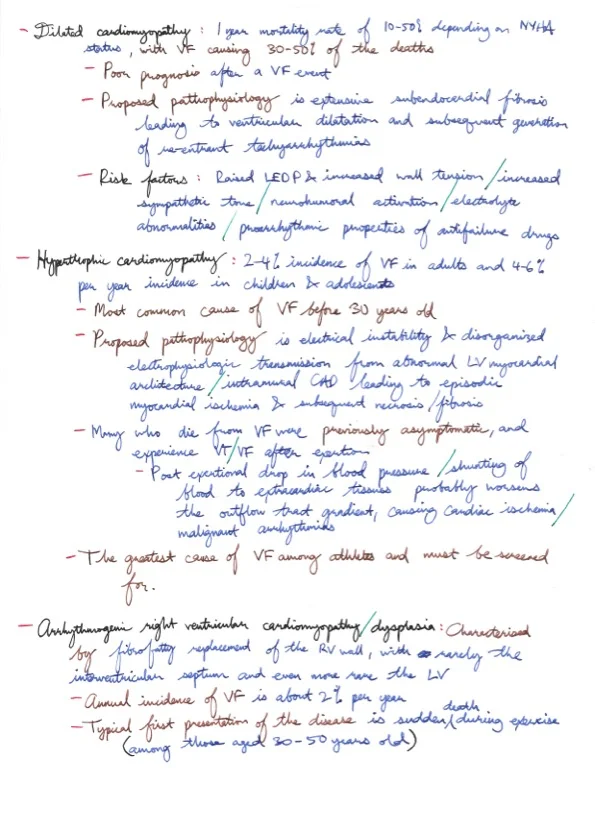 - Dilated cardiomyopathy : 1 year mortality rate of 10-50% depending on NYHA
status, with VF causing 30-50% of the deaths
- Poor prognosis after a VF event
- Proposed pathophysiology is extensive subendocardial fibrosis
leading to ventricular dilatation and subsequent generation
of re-entrant tachyarrhythmias
- Risk factors : Raised LEDP & increased wall tension / increased
sympathetic tone / neurohumoral activation / electrolyte
abnormalities / proarrhythmic properties of antifailure drugs
- Hypertrophic cardiomyopathy : 2-4% incidence of VF in adults and 4-6%
per year incidence in children & adolescents
- Most common cause of VF before 30 years old
- Proposed pathophysiology is electrical instability & disorganized
electrophysiologic transmission from abnormal LV myocardial
architecture / intramural CAD leading to episodic
myocardial ischemia & subsequent necrosis / fibrosis
- Many who die from VF were previously asymptomatic, and
experience VT/VF after exertion
- Post exertional drop in blood pressure / shunting of
blood to extracardiac tissues probably worsens
the outflow tract gradient, causing cardiac ischemia /
malignant arrhythmias
- The greatest cause of VF among athletes and must be screened
for.
- Arrhythmogenic right ventricular cardiomyopathy / dysplasia : Characterised
by fibrofatty replacement of the RV wall, with rarely the
interventricular septum and even more rare the LV
- Annual incidence of VF is about 2% per year
- Typical first presentation of the disease is sudden death / during exercise
(among those aged 30-50 years old)